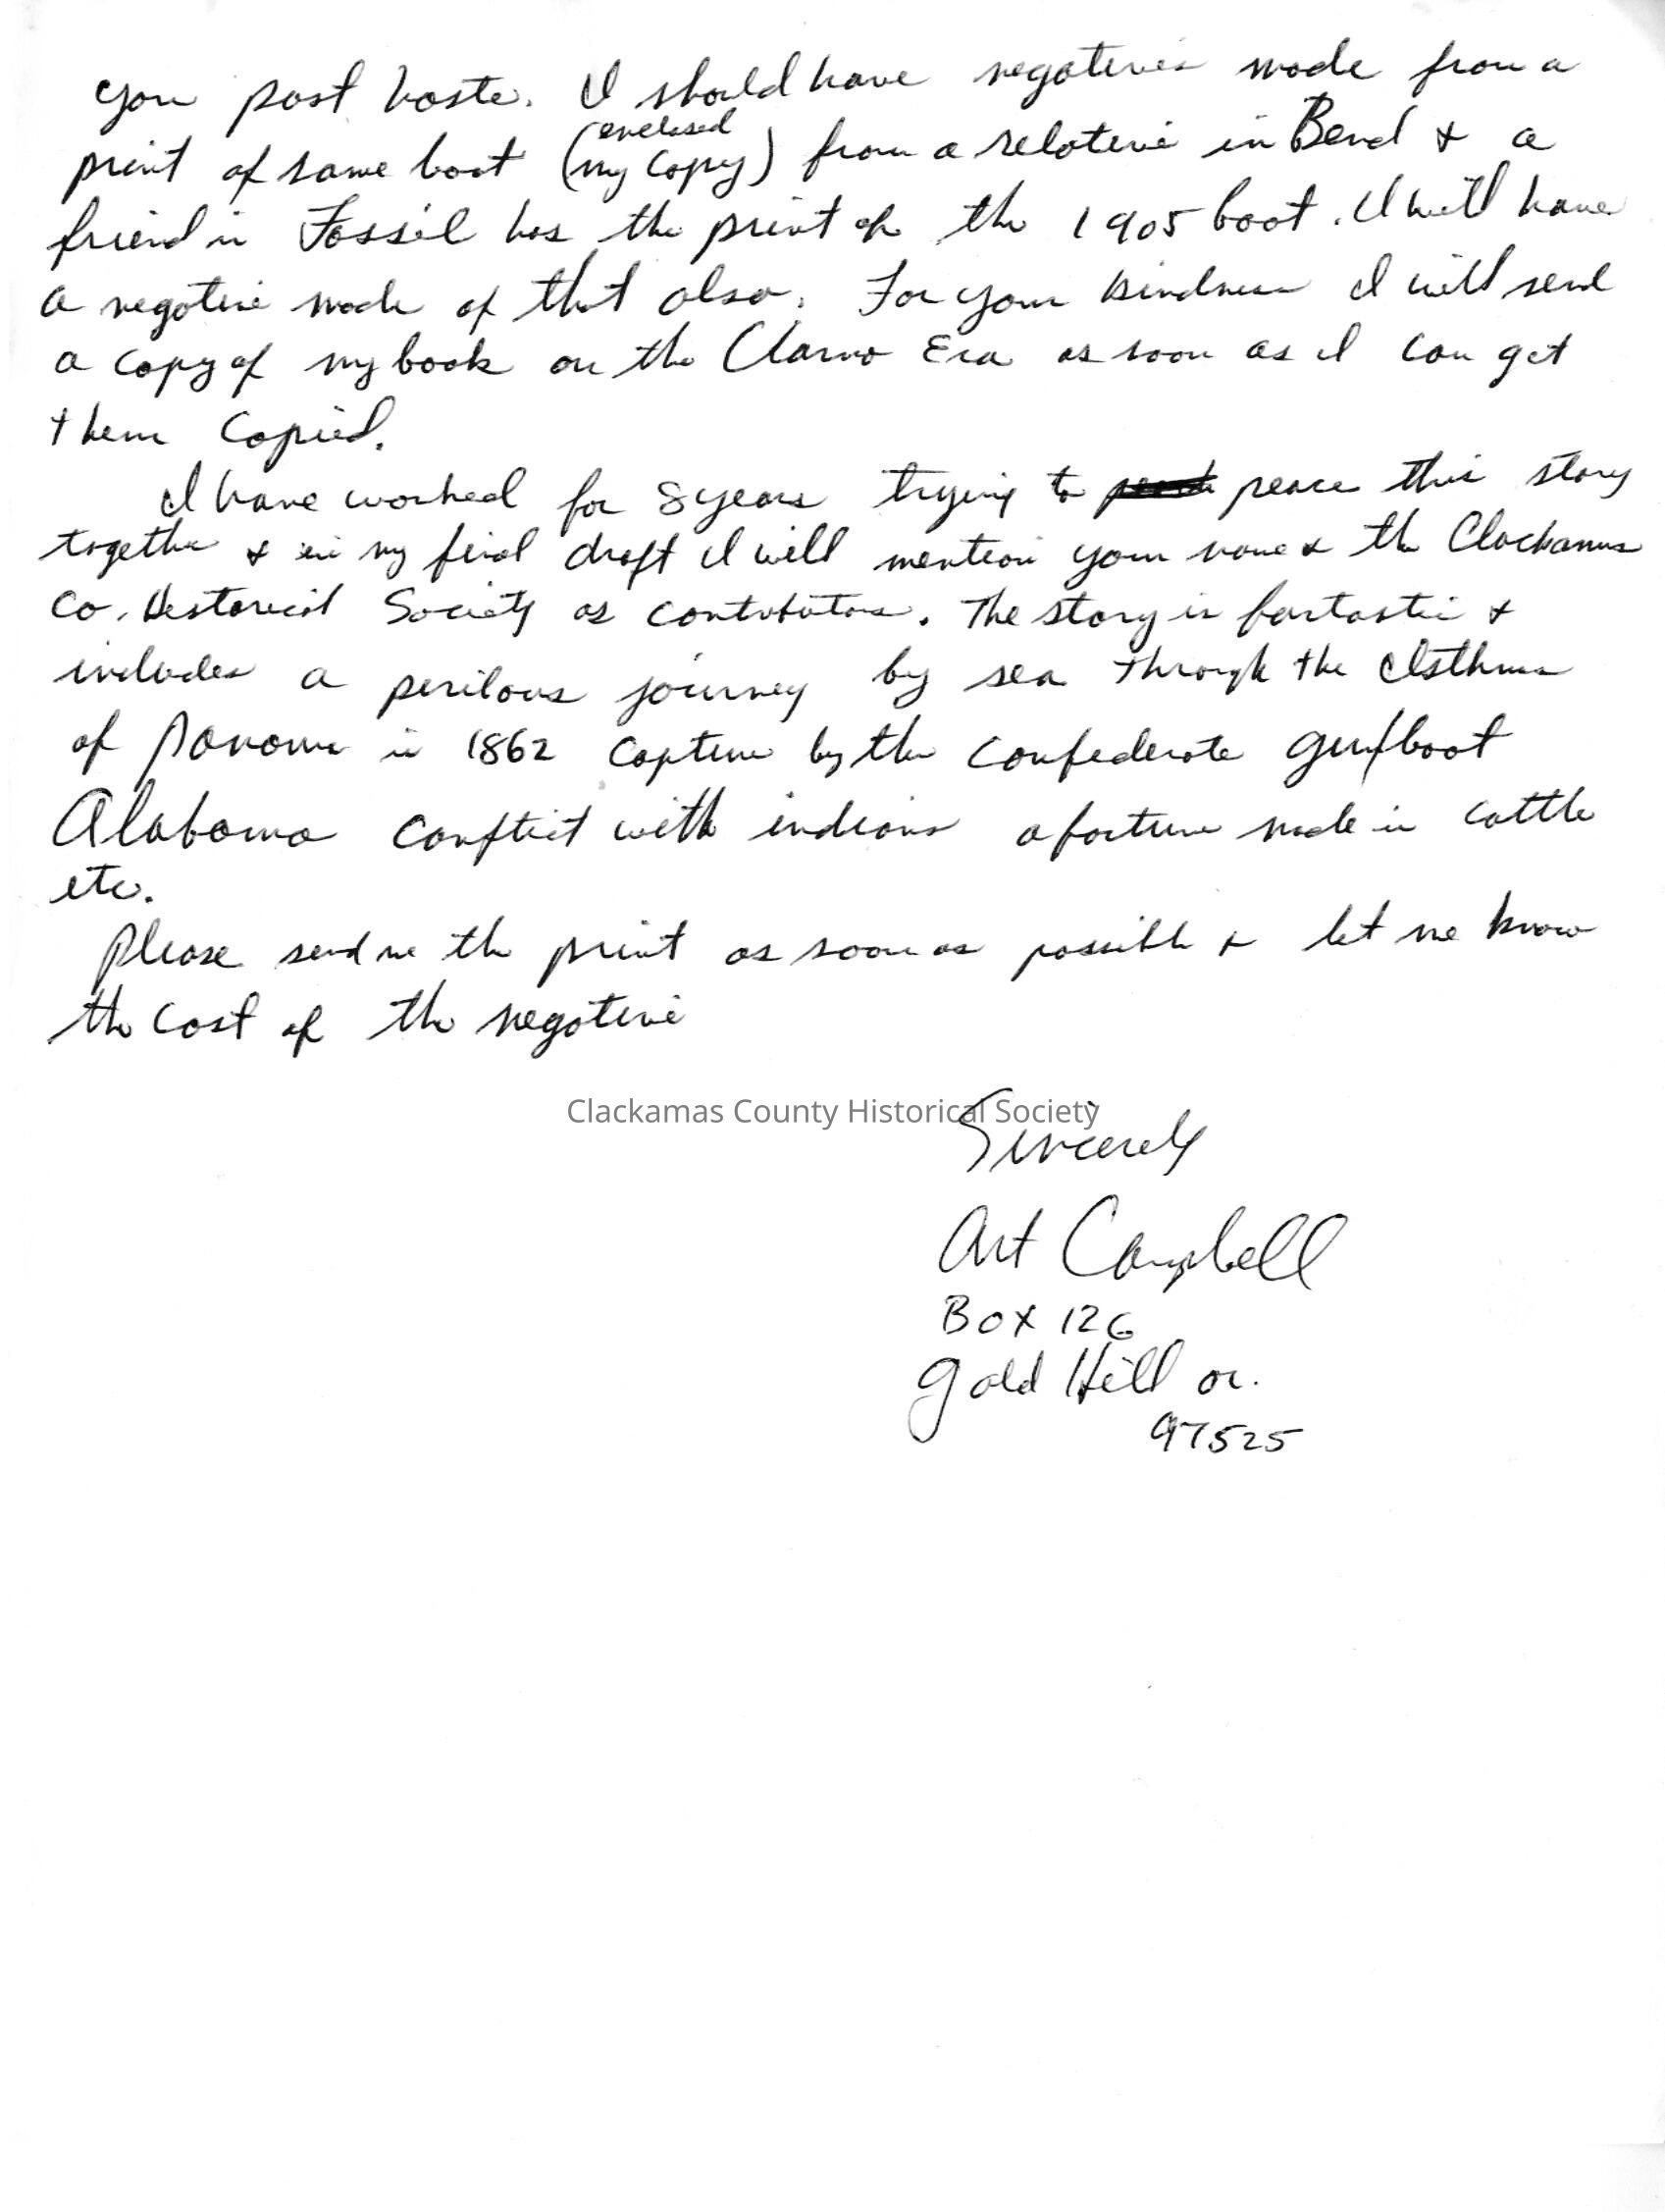 you post haste. I should have negatives made from a
print of same boat (enclosed my copy) from a relative in Bend & a
friend in Fossil has the print of the 1905 boat. I will have
a negative made of that also. For your kindness I will send
a copy of my book on the Clarno Era as soon as I can get
them copied.
I have worked for 8 years trying to peace this story
together & in my final draft I will mention your name & the Clackamas
Co. Historical Society as contributors. The story is fantastic &
includes a perilous journey by sea through the Isthmus
of Panama in 1862 capture by the confederate gunboat
Alabama conflict with indians a fortune made in cattle
etc.
Please send me the print as soon as possible & let me know
the cost of the negative
Clackamas County Historical Society
Sincerely
Art Campbell
Box 126
Gold Hill or.
97525